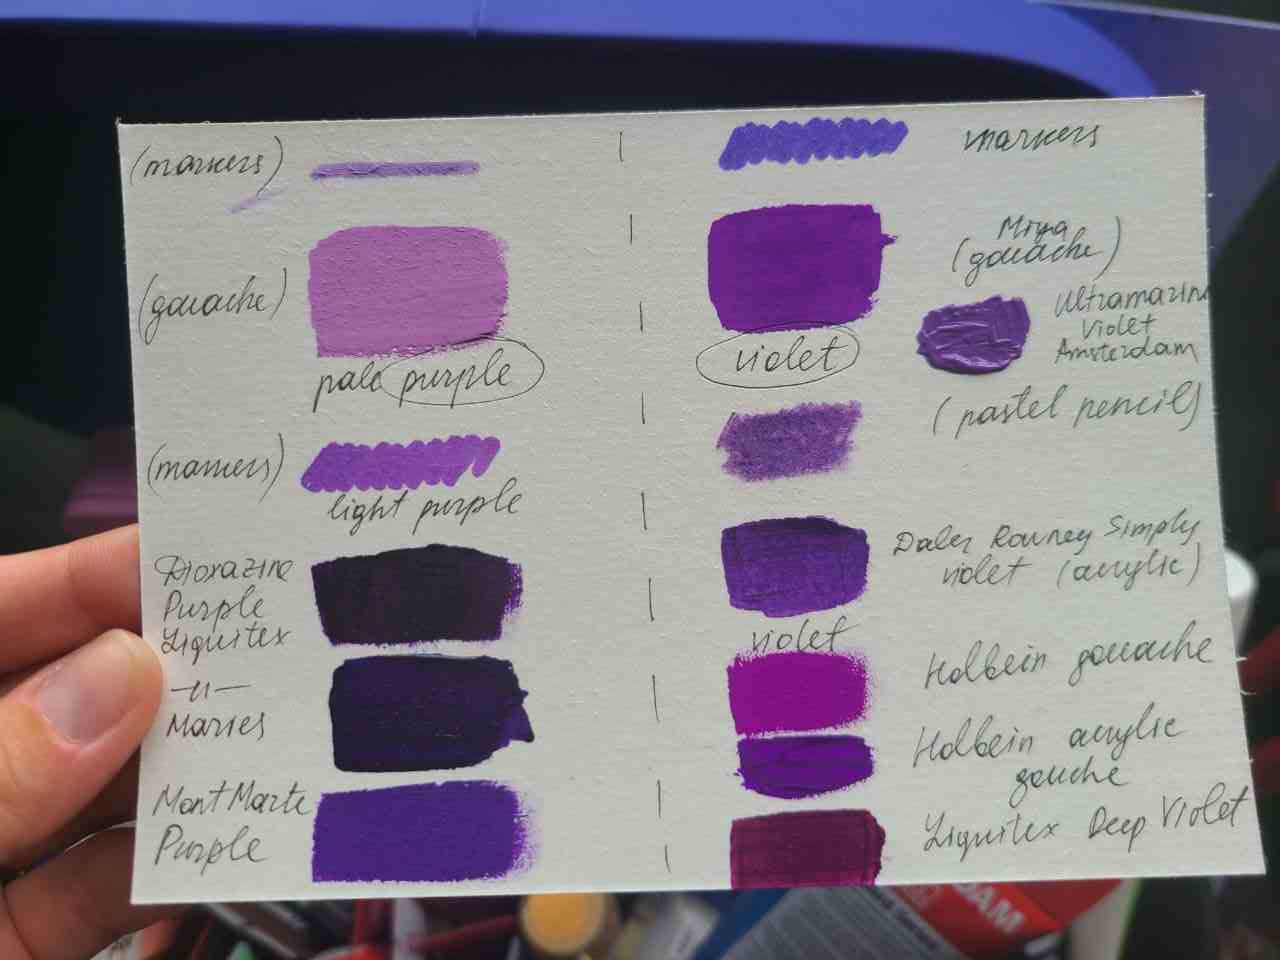 (markers)
(gouache)
pale purple
(markers)
light purple
Dioxazine
Purple
Liquitex
—"—
Maries
Mont Marte
Purple
markers
Miya
(gouache)
violet
Ultramarine
Violet
Amsterdam
(pastel pencil)
Daler Rowney Simply
violet (acrylic)
violet
Holbein gouache
Holbein acrylic
gouche
Liquitex Deep Violet
DAM